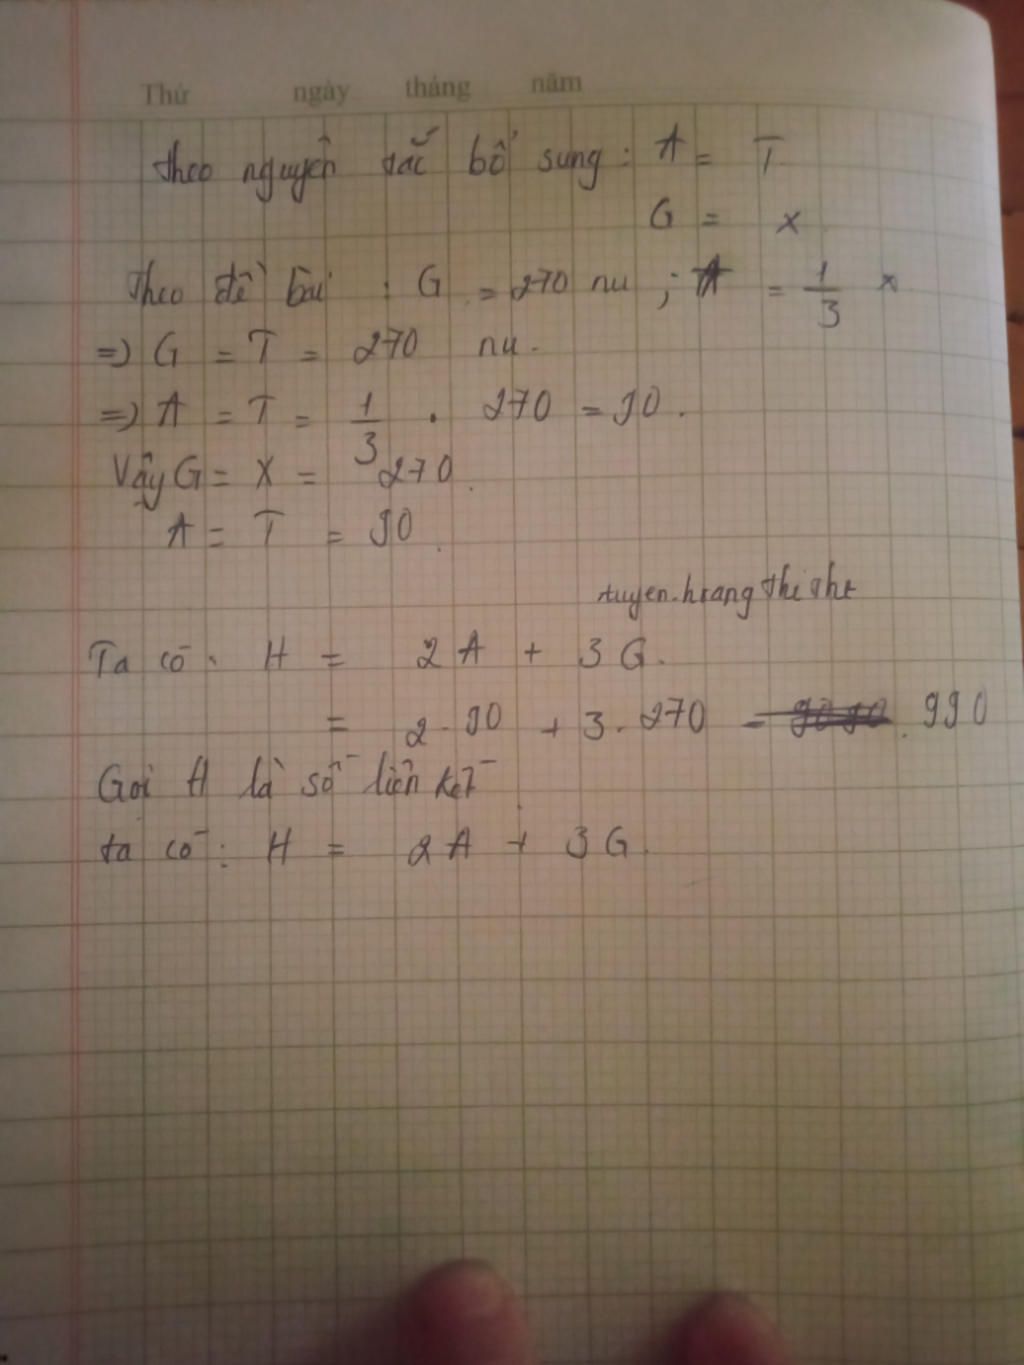 Thứ ngày tháng năm
Theo nguyên tắc bổ sung : A = T
G = X
Theo đề bài : G = 270 nu ; A = 1/3 X
=) G = T = 270 nu.
=) A = T = 1/3 . 270 = 90.
Vậy G = X = 270.
A = T = 90.
tuyen.hoang thi the
Ta có : H = 2A + 3G.
= 2.90 + 3.270 = 990
Gọi H là số liên kết
ta có : H = 2A + 3G.